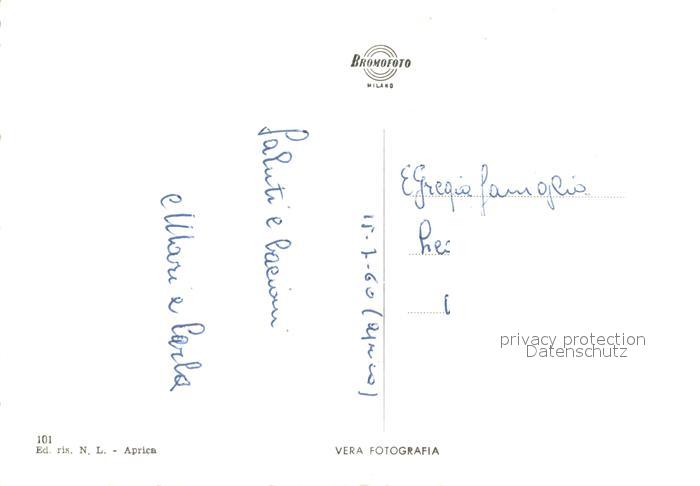 BROMOFOTO
MILANO
Saluti e bacioni
e Mari e Carla
15-7-60 (Aprica)
Egregia famiglia
privacy protection
Datenschutz
101
Ed. ris. N. L. - Aprica
VERA FOTOGRAFIA